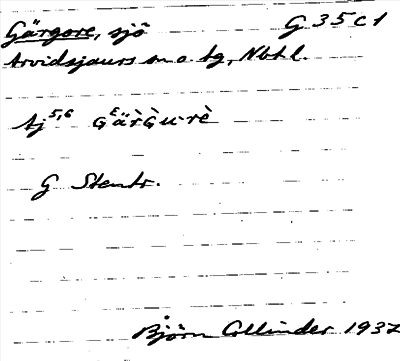 Gärgore, sjö G 35 c 1
Arvidsjaurs sn o. tg, Nbtl.
Aj 5,6 GᴱäṙG̀u·rè
G Stentr.
Björn Collinder 1937